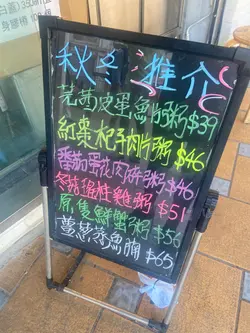 秋冬推介
芫茜皮蛋魚片粥$39
紅棗杞子肉片粥$46
番茄蛋花肉碎粥$46
冬菇滑雞粥$51
原隻鮮蟹粥$56
薑葱蒸魚腩$65